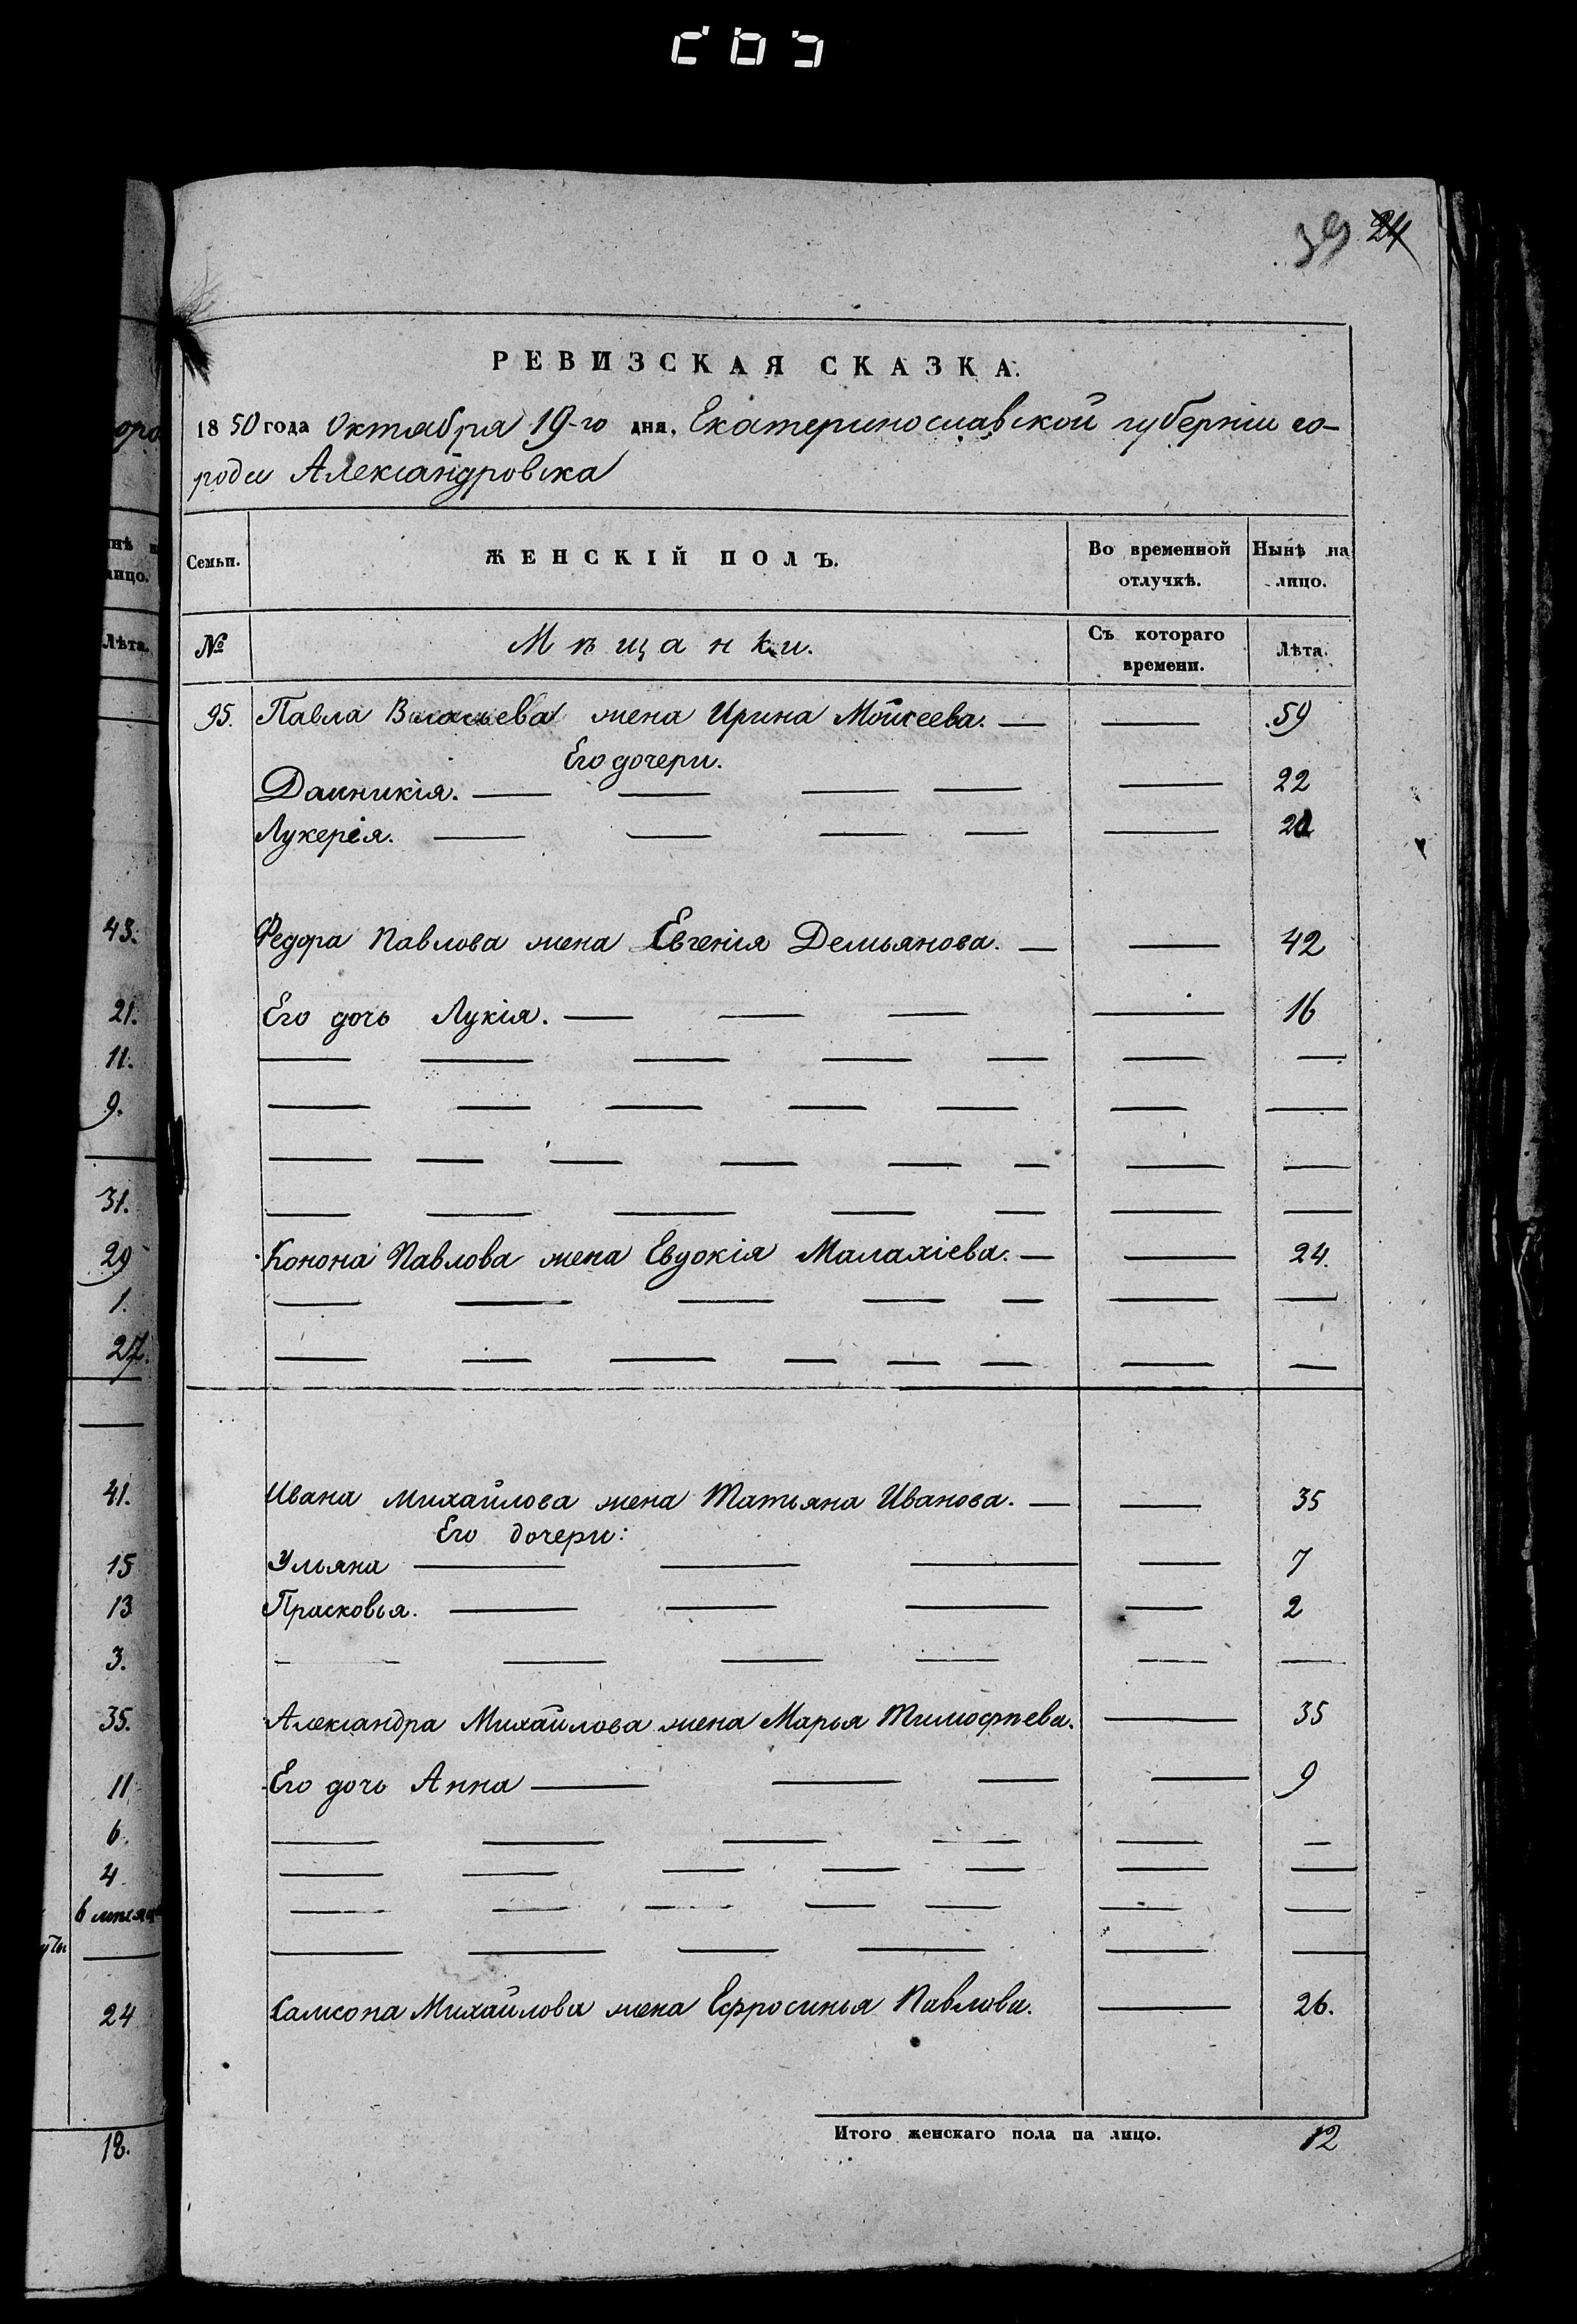 39 24
РЕВИЗСКАЯ СКАЗКА.
1850 года Октября 19-го дня, Екатеринославской губерніи го-
рода Александровска
Семьи. ЖЕНСКІЙ ПОЛЪ. Во временной отлучкѣ. Нынѣ на лицо.
№ Мѣщанки. Съ котораго времени. Лѣта.
95. Павла жена Ирина Мойсеева. — — 59
Его дочери.
Домникія. — — — — — 22
Лукерія. — — — — —
Федора Павлова жена Евгенія Демьянова. — — 42
Его дочь Лукія. — — — — 16
— — — — — — —
— — — — — — —
— — — — — — — —
— — — — — — —
Конона Павлова жена Евдокія Малахіева. — — 24.
— — — — — — —
— — — — — — — —
Ивана Михайлова жена Татьяна Иванова. — — 35
Его дочери:
Ульяна — — — — 7
Прасковья. — — — — 2
— — — — — —
Александра Михайлова жена Марья Тимофѣева. — 35
Его дочь Анна — — — — 9
— — — — — —
— — — — — — —
— — — — — — —
— — — — — —
Самсона Михайлова жена Ефросинья Павлова. — 26.
Итого женскаго пола на лицо. 12
оро
нѣ н
лицо.
Лѣта.
43.
21.
11.
9.
—
31.
29
1.
27.
—
41.
15
13
3.
35.
11
6.
4.
6 мѣсяц
—
24
12.